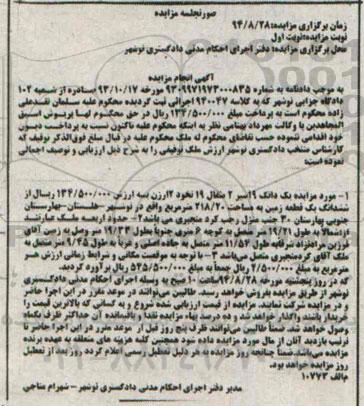 صورتجلسه مزایده
زمان برگزاری مزایده:۹۴/۸/۲۸
نوبت مزایده:نوبت اول
محل برگزاری مزایده: دفتر اجرای احکام مدنی دادگستری نوشهر
آگهی انجام مزایده
به موجب دادنامه به شماره ۹۳۰۹۹۷۱۹۷۳۰۰۰۸۳۵ مورخه ۹۳/۱۰/۱۷ صادره از شعبه ۱۰۲
دادگاه جزایی نوشهر که به کلاسه ۹۴۰۰۴۷ اجرائی ثبت گردیده محکوم علیه سلمان نقدعلی
زاده محکوم است به پرداخت مبلغ ۱۳۴/۵۰۰/۰۰۰ ریال در حق محکوم له
المجاهدین با وکالت مهرداد بهنامی نظر به اینکه محکوم علیه تاکنون نسبت به پرداخت دیون
خود اقدامی ننموده حسب تقاضای محکوم له ملک محکوم علیه در قبال مبلغ فوق الذکر توقیف که
کارشناس منتخب دادگستری نوشهر ارزش ملک توقیفی را به شرح ذیل ارزیابی و توصیف اجمالی
نموده است:
۱- مورد مزایده یک دانگ ۱۹سیر ۲ مثقال ۱۹ نخود ۲ارزن به ارزش ۱۳۴/۵۰۰/۰۰۰ ریال از
ششدانگ یک قطعه زمین به مساحت ۲۱۸/۲۰ مترمربع واقع در نوشهر -
جنوبی بهارستان ۳۰ حمید منزل رجب کرد منجیری می باشد ۲- حدود اربعه ملک عبارتند
ازشمالا به طول ۱۹/۲۱ متر متصل به کوچه ۶ متری جنوبا بطول ۱۹/۳۳ متر وصل به زمین آقای
فرزین مرادنژاد شرقا به طول ۱۱/۵۶ متر متصل به جاده اصلی و غربا به طول ۹/۴۵ متر متصل به
ملک آقای کردمنجیری متصل میباشد ۳- با توجه به موقعیت مکانی و شرایط زمانی ارزش هر
مترمربع به مبلغ ۲/۵۰۰/۰۰۰ ریال جمعا به مبلغ ۵۴۵/۵۰۰/۰۰۰ ریال برآورد گردید.
که در روز پنجشنبه مورخه ۹۴/۸/۲۸ ساعت ۱۰ صبح به وسیله اجرای احکام مدنی دادگستری
نوشهر از طریق مزایده بفروش خواهد رسید. طالبین می توانند در موعد مقرر در این اجرا حاضر
و در مزایده شرکت نمایند. مزایده از قیمت ارزیابی شده شروع و به کسانی که بالاترین قیمت را
خریدار باشند واگذار خواهد شد و ده درصد بهاء مزایده نقدا و باقیمانده آن حداکثر ظرف یکماه
وصول خواهد شد. ضمنا طالبین می توانند ظرف پنج روز قبل از موعد مقرر در این اجرا حاضر تا
ترتیب بازدید آنان از مال مورد مزایده داده شود همچنین کلیه هزینه های متعلقه به عهده برنده
مزایده می باشد.ضمنا چنانچه روز مزایده به هر دلیل تعطیل رسمی اعلام گردد روز بعد از تعطیل
روز مزایده خواهد بود.
م/الف ۱۰۷۷۳
مدیر دفتر اجرای احکام مدنی دادگستری نوشهر - شهرام متاجی